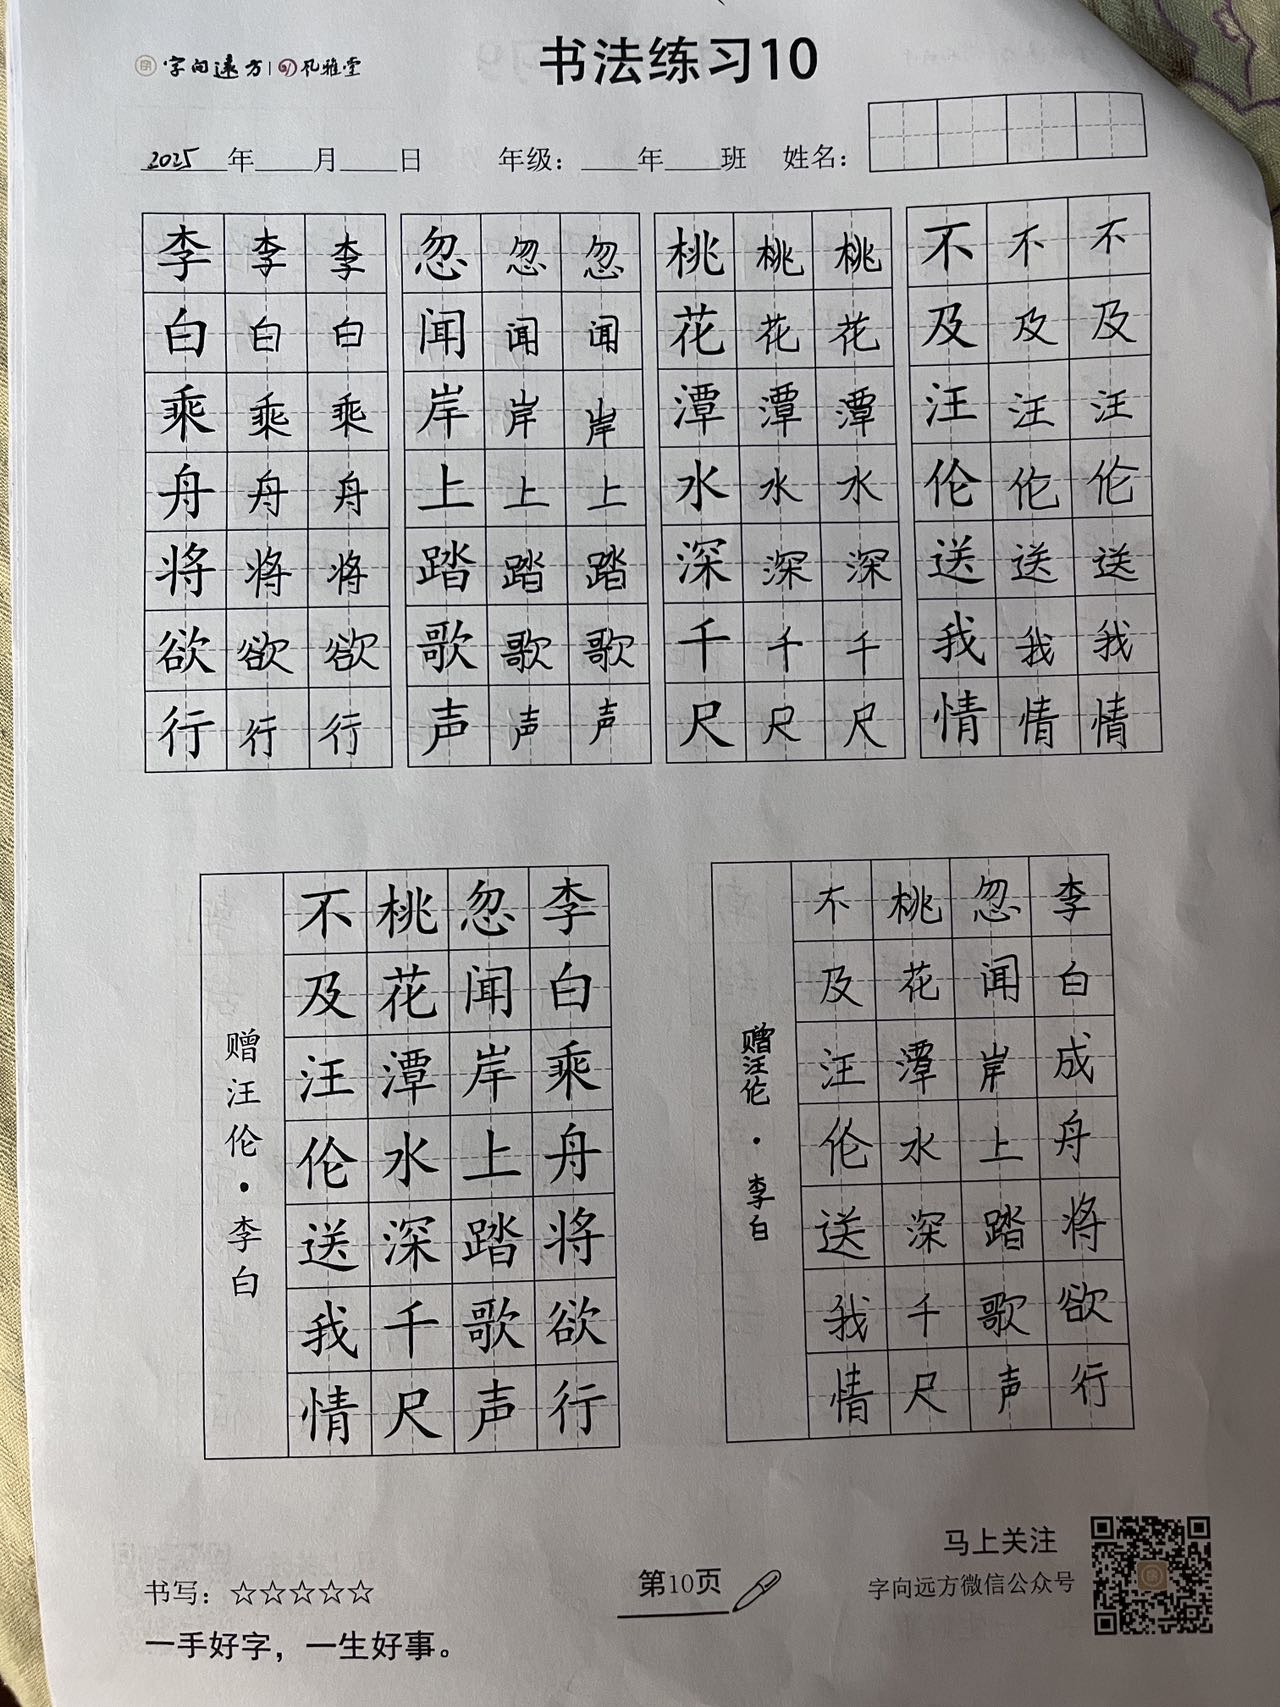 字向远方 孔雅堂
书法练习10
2025年 月 日 年级: 年 班 姓名:
李李李 忽忽忽 桃桃桃 不不不
白白白 闻闻闻 花花花 及及及
乘乘乘 岸岸岸 潭潭潭 汪汪汪
舟舟舟 上上上 水水水 伦伦伦
将将将 踏踏踏 深深深 送送送
欲欲欲 歌歌歌 千千千 我我我
行行行 声声声 尺尺尺 情情情
李白乘舟将欲行
忽闻岸上踏歌声
桃花潭水深千尺
不及汪伦送我情
赠汪伦·李白
李白成舟将欲行
忽闻岸上踏歌声
桃花潭水深千尺
不及汪伦送我情
赠汪伦·李白
书写:☆☆☆☆☆
一手好字，一生好事。
第10页
马上关注
字向远方微信公众号